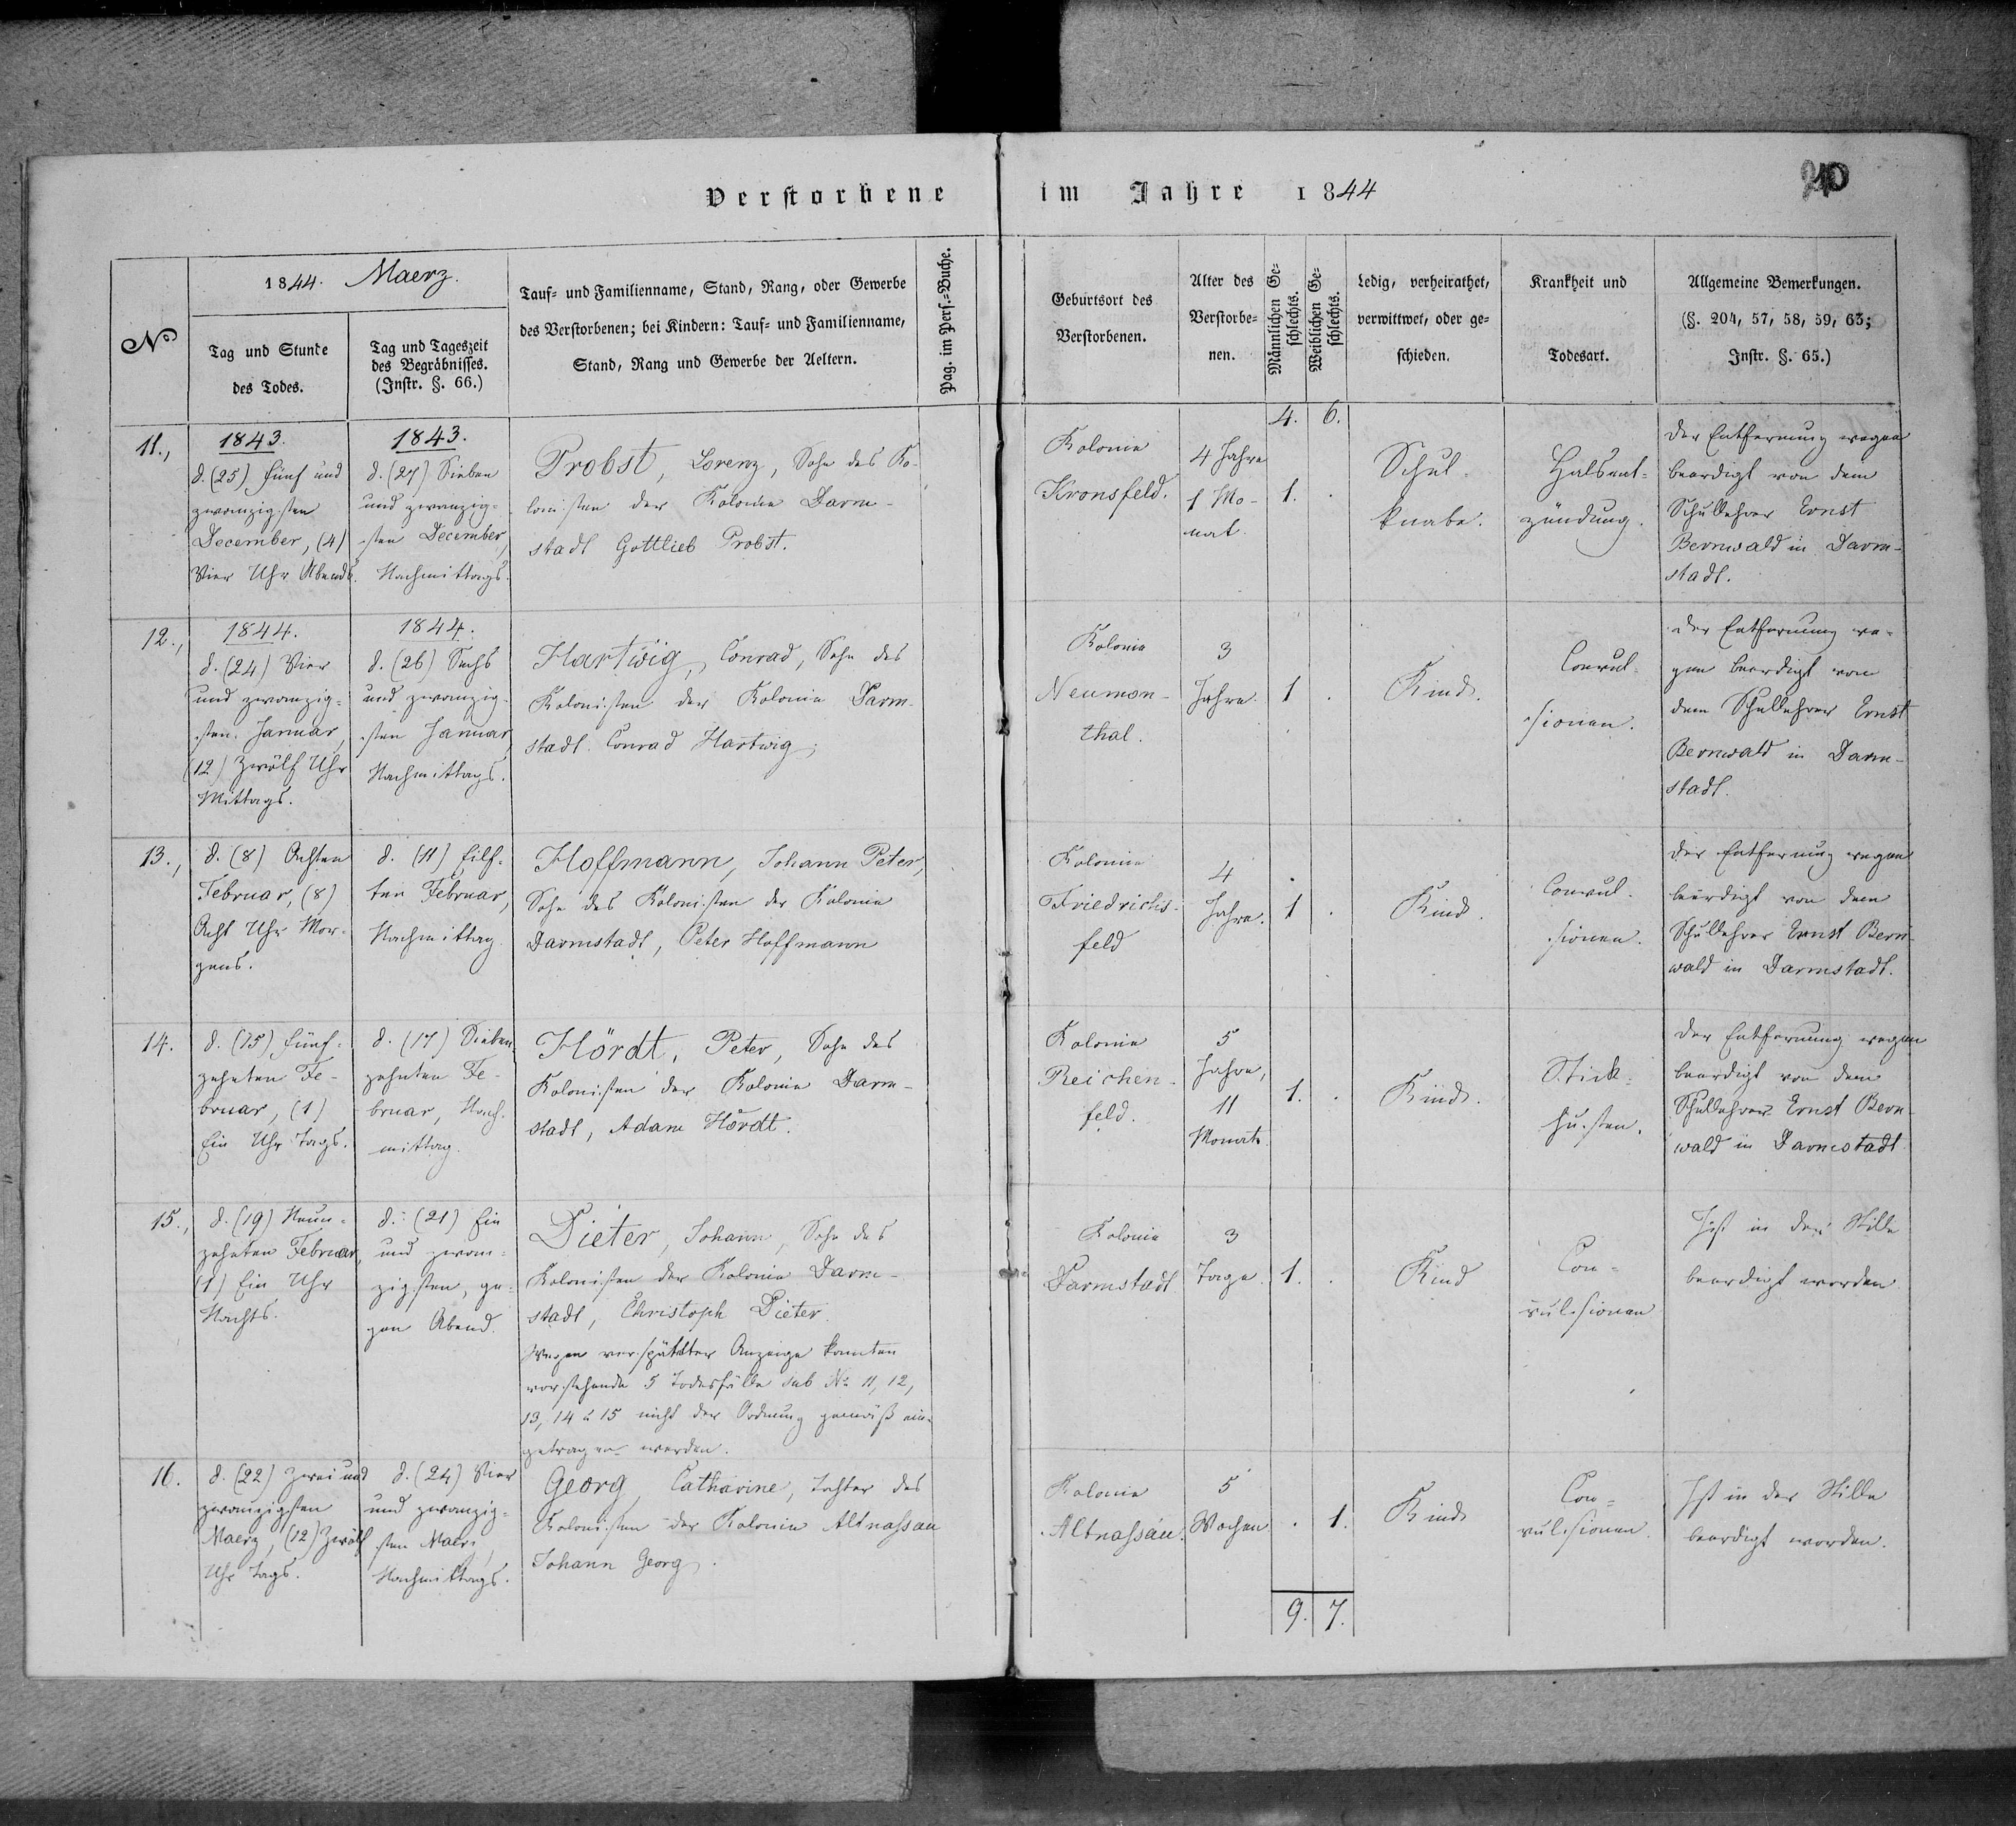 Verstorbene im Jahre 1844
210
1844. Maerz.
No
Tag und Stunde
des Todes.
Tag und Tageszeit
des Begräbnisses.
(Instr. §. 66.)
Tauf- und Familienname, Stand, Rang, oder Gewerbe
des Verstorbenen; bei Kindern: Tauf- und Familienname,
Stand, Rang und Gewerbe der Aeltern.
Pag. im Pers.-Buche.
Geburtsort des
Verstorbenen.
Alter des
Verstorbe-
nen.
Männlichen Ge-
schlechts.
Weiblichen Ge-
schlechts.
Ledig, verheirathet,
verwittwet, oder ge-
schieden.
Krankheit und
Todesart.
Allgemeine Bemerkungen.
(§. 204, 57, 58, 59, 63;
Instr. §. 65.)
4. 6.
11.,
1843.
d. (25) fünf und
zwanzigsten
December, (4)
Vier Uhr Abends.
1843.
d. (27) Sieben
und zwanzig-
sten December,
Nachmittags.
Probst, Lorenz, Sohn des Ko-
lonisten der Kolonie Darm-
stadt Gottlieb Probst.
Kolonie
Kronsfeld.
4 Jahre
1 Mo-
nat.
1. .
Schul-
knabe.
Halsent-
zündung.
Der Entfernung wegen
beerdigt von dem
Schullehrer Ernst
Bernwald in Darm-
stadt.
12.,
1844.
d. (24) Vier
und zwanzig-
sten Januar,
(12) Zwölf Uhr
Mittags.
1844.
d. (26) Sechs
und zwanzig-
sten Januar
Nachmittags.
Hartwig, Conrad, Sohn des
Kolonisten der Kolonie Darm-
stadt Conrad Hartwig;
Kolonie
Neumon-
thal.
3
Jahre.
1 .
Kind.
Convul-
sionen.
Der Entfernung we-
gen beerdigt von
dem Schullehrer Ernst
Bernwald in Darm-
stadt.
13.,
d. (8) Achten
Februar, (8)
Acht Uhr Mor-
gens.
d. (11) Eilf-
ten Februar,
Nachmittag.
Hoffmann, Johann Peter,
Sohn des Kolonisten der Kolonie
Darmstadt, Peter Hoffmann
Kolonie
Friedrichs-
feld
4
Jahre.
1 .
Kind.
Convul-
sionen.
Der Entfernung wegen
beerdigt von dem
Schullehrer Ernst Bern-
wald in Darmstadt.
14.
d. (15) fünf-
zehnten Fe-
bruar, (1)
Ein Uhr Tags.
d. (17) Sieben-
zehnten Fe-
bruar, Nach-
mittag.
Hördt, Peter, Sohn des
Kolonisten der Kolonie Darm-
stadt, Adam Hördt.
Kolonie
Reichen-
feld.
5
Jahre,
11
Monate.
1. .
Kind.
Stick-
husten.
Der Entfernung wegen
beerdigt von dem
Schullehrer Ernst Bern-
wald in Darmstadt
15.,
d. (19) Neun-
zehnten Februar,
(1) Ein Uhr
Nachts.
d. (21) Ein
und zwan-
zigsten, ge-
gen Abend.
Dieter, Johann, Sohn des
Kolonisten der Kolonie Darm-
stadt, Christoph Dieter.
Wegen verspäteter Anzeige konnten
vorstehende 5 Todesfälle sub No 11, 12,
13, 14 & 15 nicht der Ordnung gemäß ein-
getragen werden.
Kolonie
Darmstadt
3
Tage.
1. .
Kind
Con-
vulsionen
Ist in der Stille
beerdigt worden.
16.
d. (22) Zwei und
zwanzigsten
Maerz, (12) Zwölf
Uhr Tags.
d. (24) Vier
und zwanzig-
sten Maerz,
Nachmittags.
Georg, Catharine, Tochter des
Kolonisten der Kolonie Altnassau
Johann Georg.
Kolonie
Altnassau.
5
Wochen
. 1.
Kind
Con-
vulsionen.
Ist in der Stille
beerdigt worden.
9. 7.